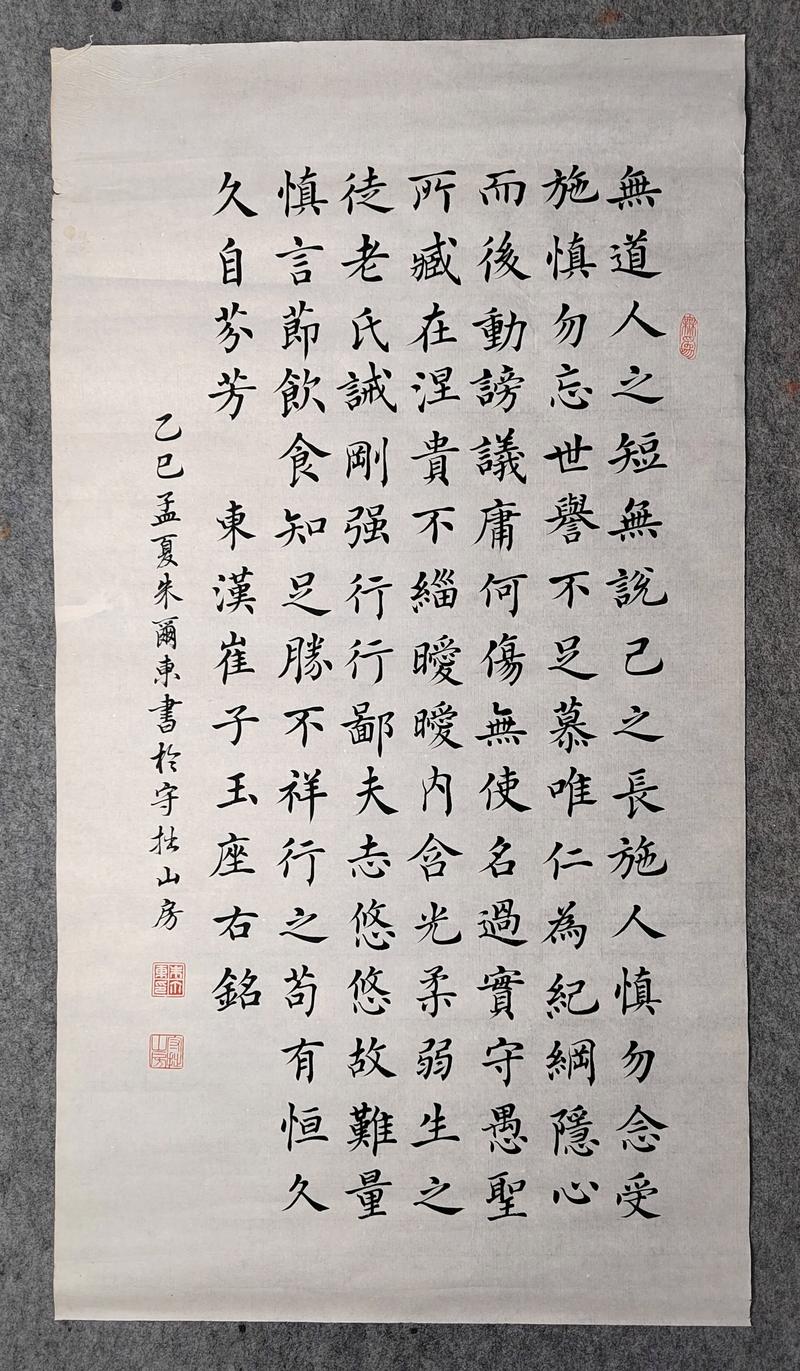 無道人之短無說己之長施人慎勿念受
施慎勿忘世譽不足慕唯仁為紀綱隱心
而後動謗議庸何傷無使名過實守愚聖
所臧在涅貴不緇曖曖內含光柔弱生之
徒老氏誡剛强行行鄙夫志悠悠故難量
慎言節飲食知足勝不祥行之苟有恒久
久自芬芳 東漢崔子玉座右銘
乙巳孟夏朱爾東書於守拙山房
守拙山房